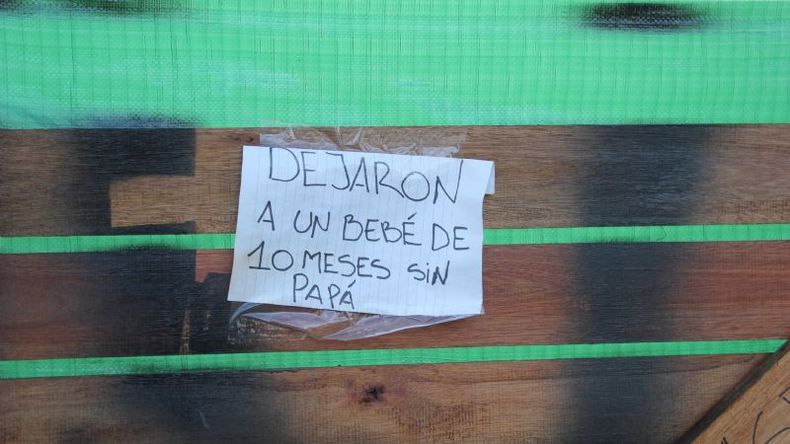 DEJARON
A UN BEBÉ DE
10 MESES SiN
PAPÁ